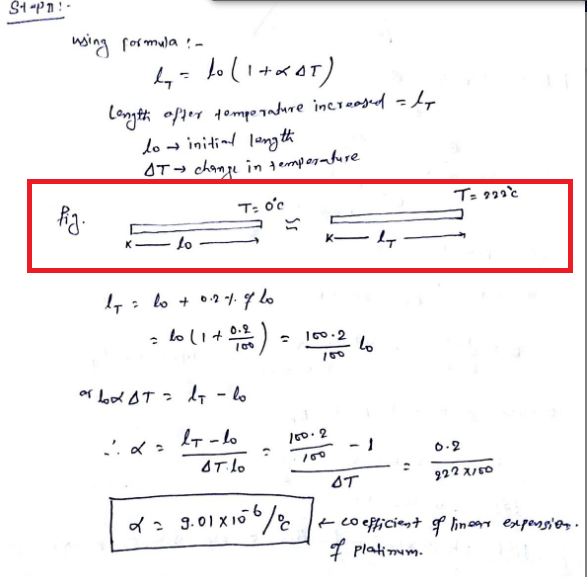 Step 1:-
using formula :-
l_T = lo (1 + α ΔT)
Length after temperature increased = l_T
lo → initial length
ΔT → change in temperature
fig. T= 0°c ≈ T= 222°c
lo l_T
l_T = lo + 0.2 % of lo
= lo (1 + 0.2/100) = 100.2/100 lo
or loα ΔT = l_T - lo
∴ α = (l_T - lo)/(ΔT.lo) = (100.2/100 - 1)/ΔT = 0.2/(222 x 100)
α = 9.01 x 10^-6 /°c ← coefficient of linear expension.
of platinum.